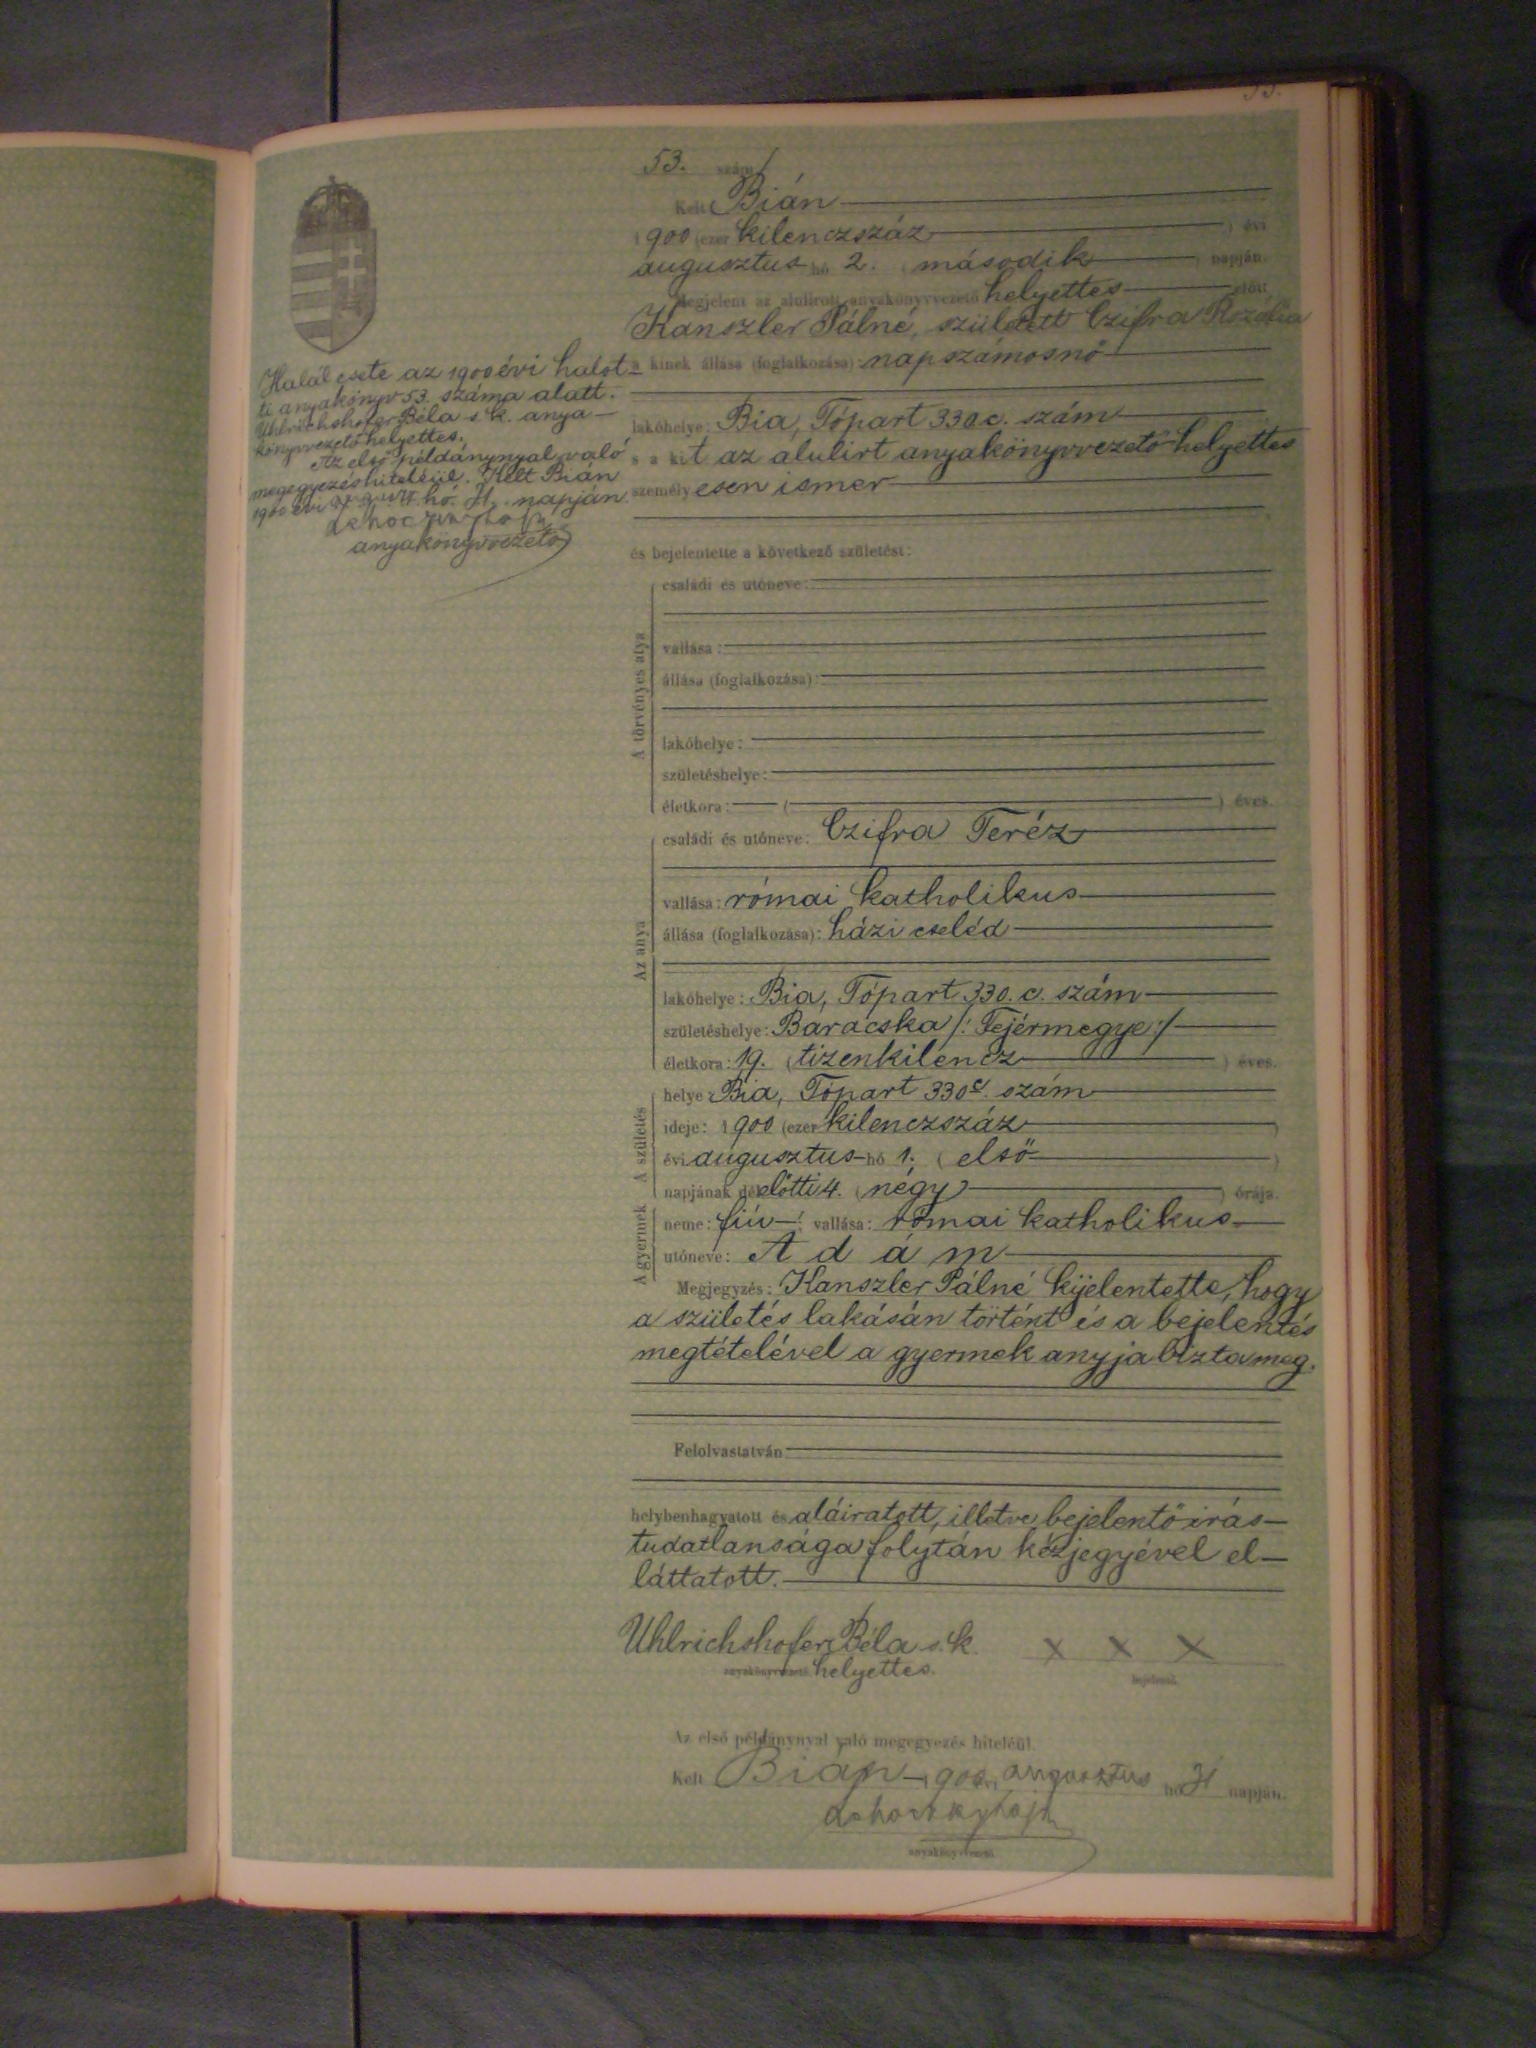 53. szám
Kelt Bián
1900 (ezer kilenczszáz ) évi
augusztus hó 2. (második ) napján.
Megjelent az alulirott anyakönyvvezető helyettes előtt
Kanszler Pálné, született Czifra Rozália
a kinek állása (foglalkozása): napszámosnő
lakóhelye: Bia, Tópart 330 c. szám
s a kit az alulirt anyakönyvvezető helyettes
személyesen ismer
és bejelentette a következő születést:
A törvényes atya
családi és utóneve:
vallása:
állása (foglalkozása):
lakóhelye:
születéshelye:
életkora: ( ) éves.
Az anya
családi és utóneve: Czifra Teréz
vallása: római katholikus
állása (foglalkozása): házi cseléd
lakóhelye: Bia, Tópart 330. c. szám
születéshelye: Baracska /: Fejérmegye :/
életkora: 19. (tizenkilencz ) éves.
A születés
helye: Bia, Tópart 330 c. szám
ideje: 1900 (ezer kilenczszáz )
évi augusztus hó 1. ( első )
napjának délelőtti 4. (négy ) órája.
A gyermek
neme: fiú; vallása: római katholikus
utóneve: Adám
Megjegyzés: Kanszler Pálné kijelentette, hogy
a születés lakásán történt és a bejelentés
megtételével a gyermek anyja bizta meg.
Felolvastatván
helybenhagyatott és aláiratott, illetve bejelentő irás-
tudatlansága folytán kézjegyével el-
láttatott.
Uhlrichshofer Béla s. k. x x x
anyakönyvvezető helyettes. bejelentő.
Az első példánynyal való megegyezés hiteléül.
Kelt Bián 1900 évi augusztus hó 31 napján.
anyakönyvvezető
Halál esete az 1900 évi halot-
ti anyakönyv 53. száma alatt.
Uhlrichshofer Béla s. k. anya-
könyvvezető helyettes.
Az első példánynyal való
megegyezés hiteléül. Kelt Bián
1900 évi auguszt. hó. 31. napján.
anyakönyvvezető